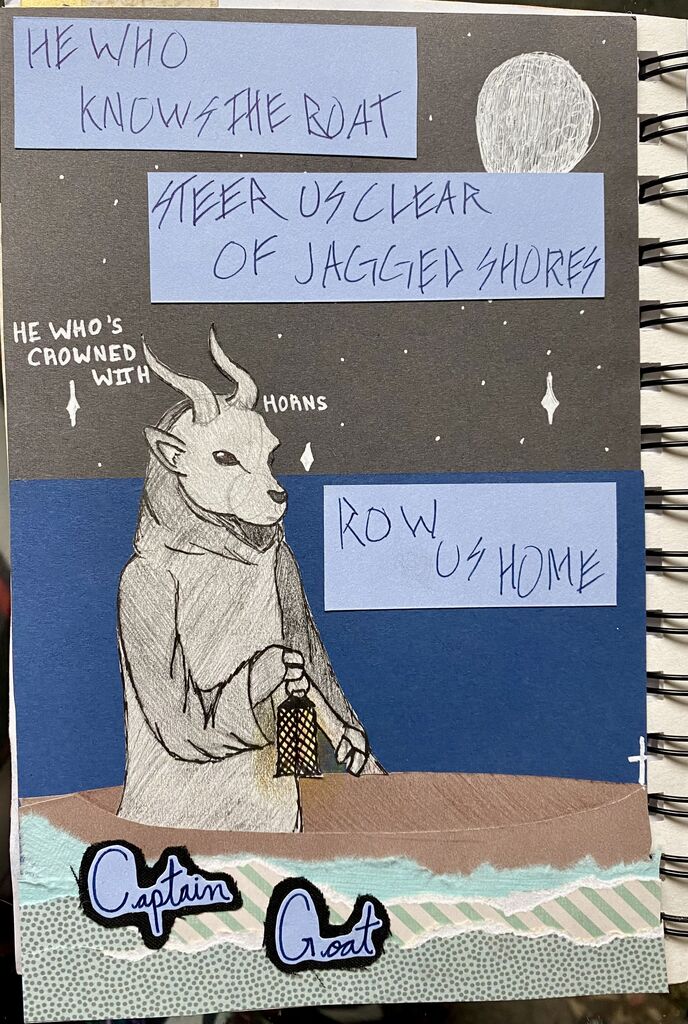 HE WHO
KNOWS THE BOAT
STEER US CLEAR
OF JAGGED SHORES
HE WHO'S
CROWNED
WITH
HORNS
ROW
US HOME
Captain
Goat